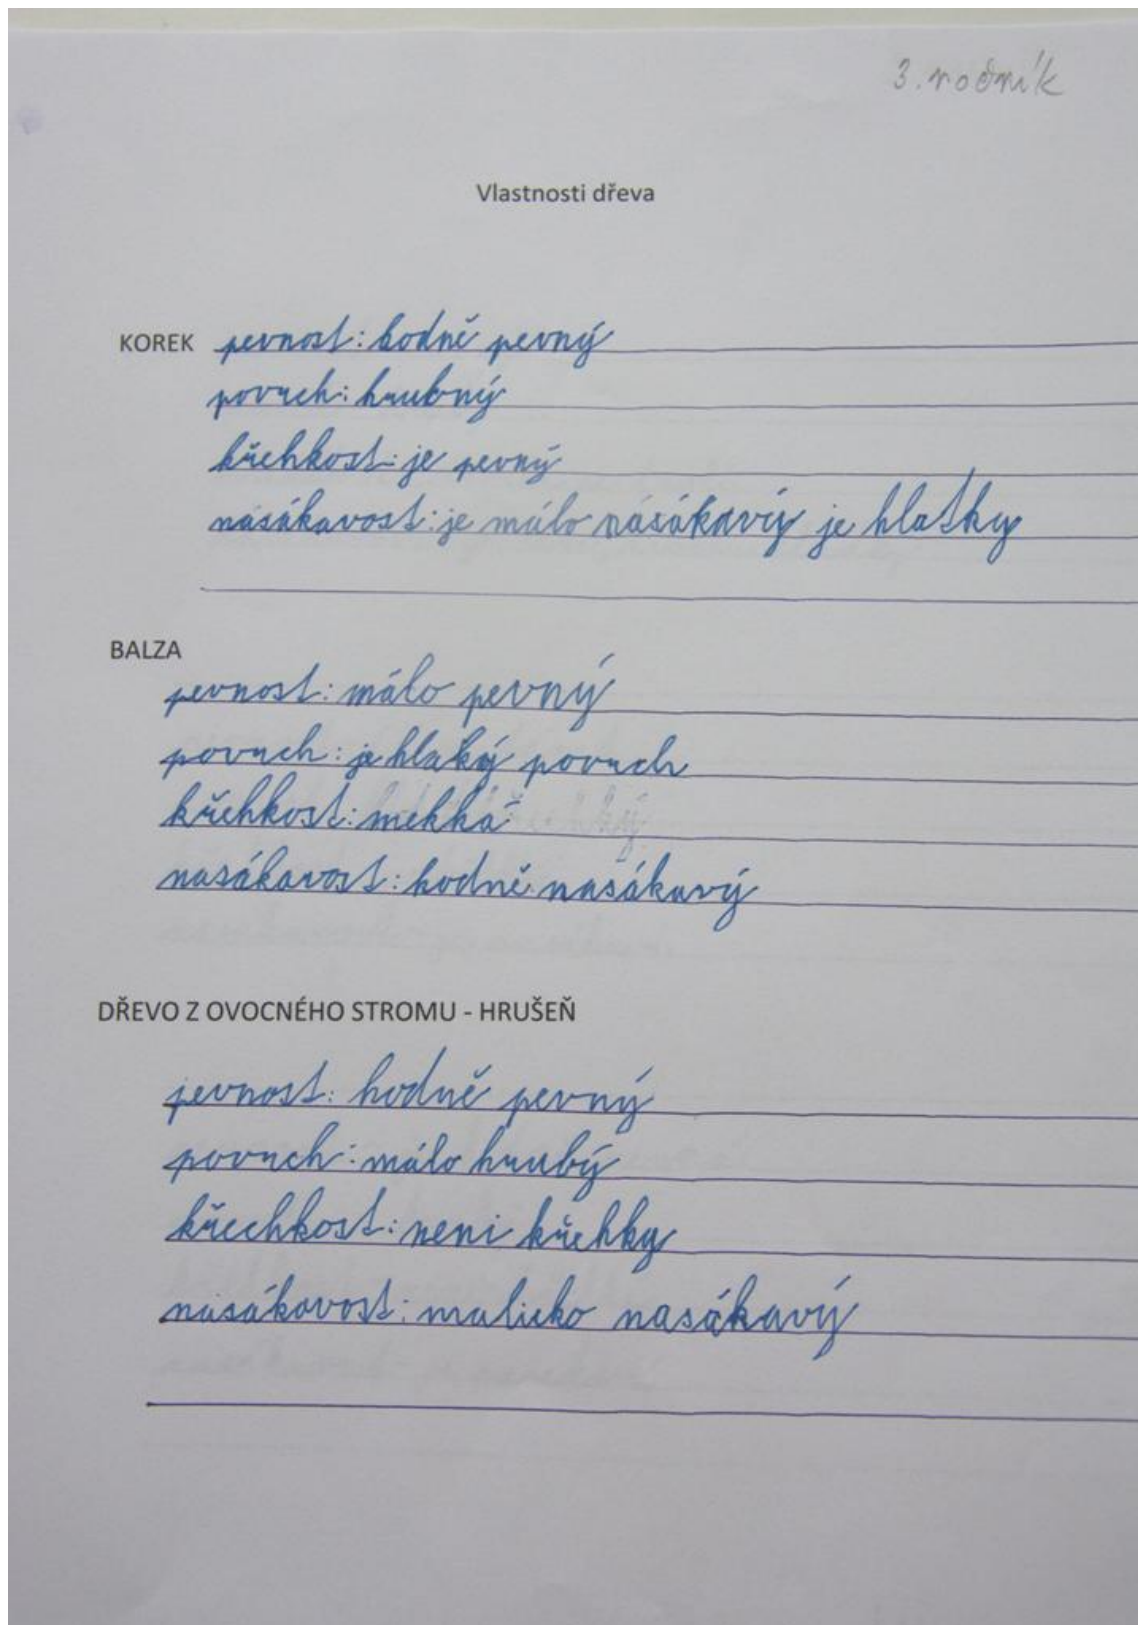 3. ročník
Vlastnosti dřeva
KOREK pevnost: hodně pevný
povrch: hrubný
křehkost: je pevný
nasákavost: je málo nasákavý je hlatky
BALZA
pevnost: málo pevný
povrch: je hlaký povrch
křehkost: mekká
nasákavost: hodně nasákavý
DŘEVO Z OVOCNÉHO STROMU - HRUŠEŇ
pevnost: hodně pevný
povrch: málo hrubý
křechkost: neni křehky
nasákovost: malicko nasákavý